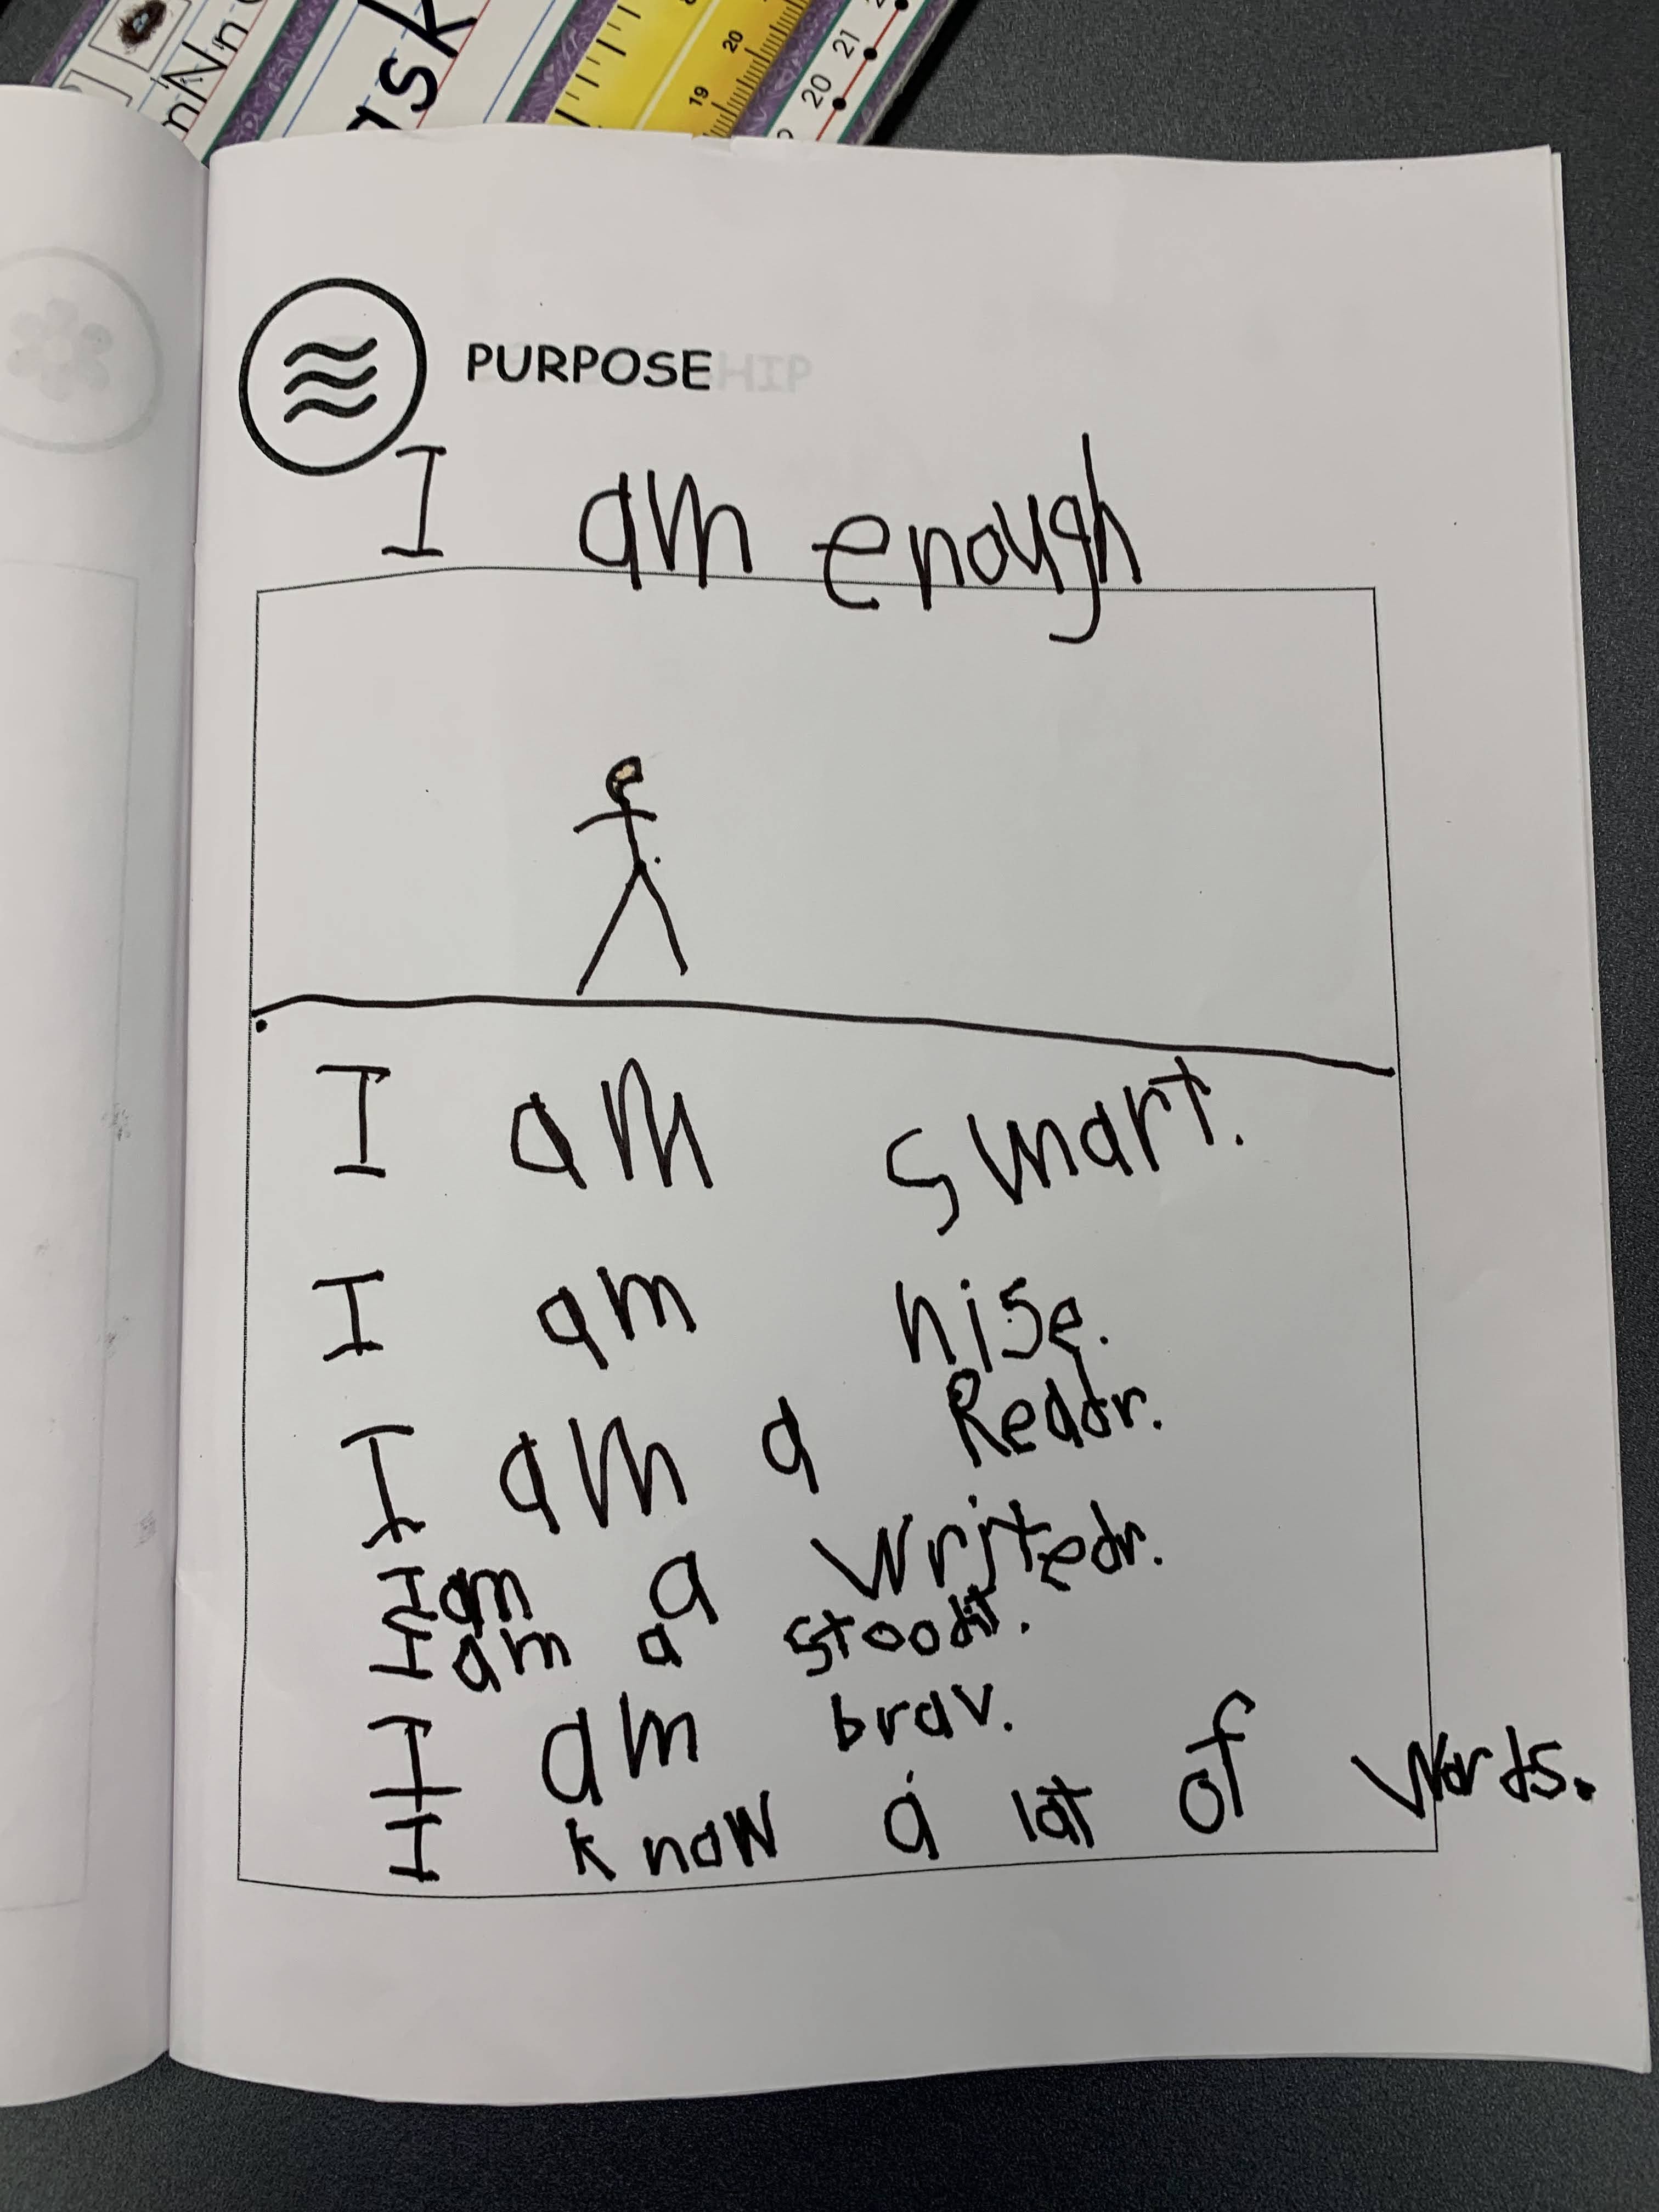 nNn
ask
19 20
20 21
PURPOSE
I am enough
I am smart.
I am nise.
I am a Readr.
I am a writedr.
I am a stoodit.
I am brav.
I know a lot of words.